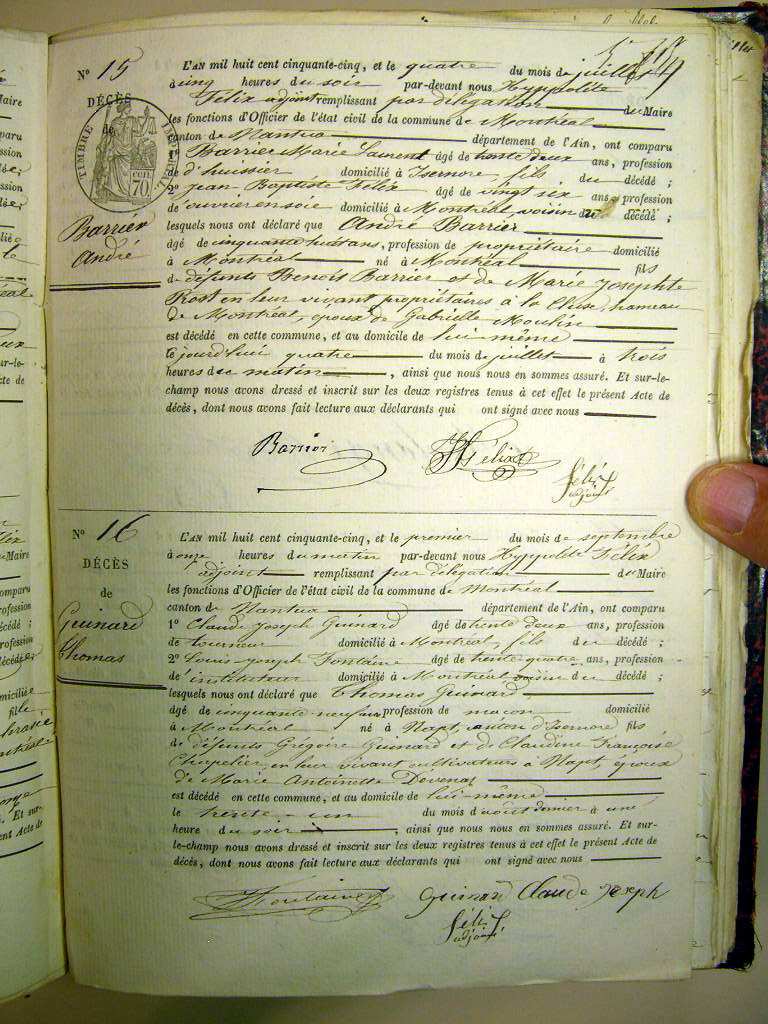 N° 15
DÉCÈS
de
TIMBRE IMPÉRIAL
70
Barrier
André
L'AN mil huit cent cinquante-cinq, et le quatre du mois de juillet
à cinq heures du soir par-devant nous Hyppolite
Félix adjoint remplissant par délégation du Maire
les fonctions d'Officier de l'état civil de la commune de Montréal
canton de Nantua département de l'Ain, ont comparu
1° Barrier Marie Laurent âgé de trente deux ans, profession
de d'huissier domicilié à Isernore, fils du décédé ;
2° Jean Baptiste Félix âgé de vingt six ans, profession
de ouvrier en soie domicilié à Montréal, voisin du décédé ;
lesquels nous ont déclaré que André Barrier
âgé de cinquante huit ans, profession de propriétaire domicilié
à Montréal né à Montréal fils
de défunts Benoît Barrier et de Marie Josephte
Prost en leur vivant propriétaires à la Cluse, hameau
de Montréal, époux de Gabrielle Moulin
est décédé en cette commune, et au domicile de lui-même
le jourd'hui quatre du mois de juillet à trois
heures du matin, ainsi que nous nous en sommes assuré. Et sur-le-
champ nous avons dressé et inscrit sur les deux registres tenus à cet effet le présent Acte de
décès, dont nous avons fait lecture aux déclarants qui ont signé avec nous
Barrier Félix
Félix
adjoint
N° 16
DÉCÈS
de
Guinard
Thomas
L'AN mil huit cent cinquante-cinq, et le premier du mois de septembre
à onze heures du matin par-devant nous Hyppolite Félix
adjoint remplissant par délégation du Maire
les fonctions d'Officier de l'état civil de la commune de Montréal
canton de Nantua département de l'Ain, ont comparu
1° Claude Joseph Guinard âgé de trente deux ans, profession
de tourneur domicilié à Montréal, fils du décédé ;
2° Louis-Joseph Fontaine âgé de trente quatre ans, profession
de instituteur domicilié à Montréal voisin du décédé ;
lesquels nous ont déclaré que Thomas Guinard
âgé de cinquante neuf ans profession de maçon domicilié
à Montréal né à Napt, canton d'Isernore fils
de défunts Grégoire Guinard et de Claudine Françoise
Chapelier, en leur vivant cultivateurs à Napt, époux
de Marie Antoinette Devenas
est décédé en cette commune, et au domicile de lui-même
le trente-un du mois d'août dernier à une
heure du soir, ainsi que nous nous en sommes assuré. Et sur-
le-champ nous avons dressé et inscrit sur les deux registres tenus à cet effet le présent Acte de
décès, dont nous avons fait lecture aux déclarants qui ont signé avec nous
Fontaine Guinard Claude Joseph
Félix
adjoint